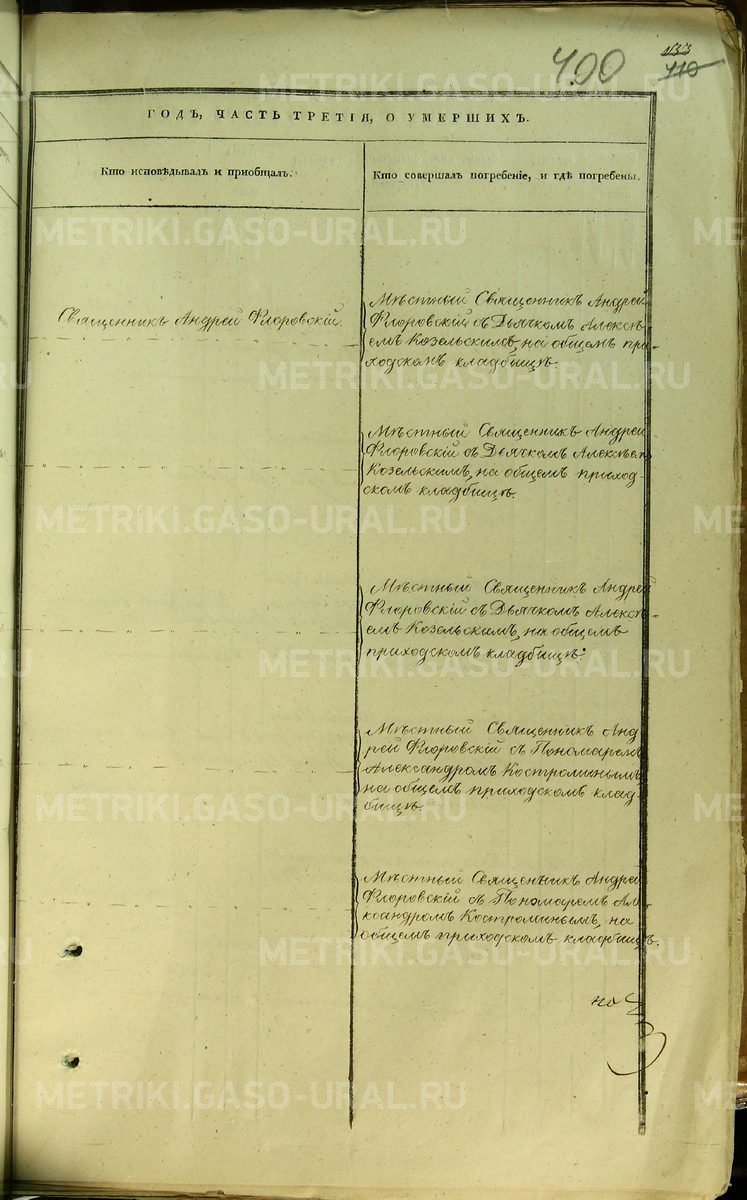 400
133
110
ГОДЪ, ЧАСТЬ ТРЕТІЯ, О УМЕРШИХЪ.
Кто исповѣдывалъ и приобщалъ.
Кто совершалъ погребеніе, и гдѣ погребены.
Священникъ Андрей Флоровскій.
Мѣстный Священникъ Андрей
Флоровскій съ Дьячкомъ Алексѣ-
емъ Козельскимъ, на общемъ при-
ходскомъ кладбищѣ.
Мѣстный Священникъ Андрей
Флоровскій съ Дьячкомъ Алексѣем
Козельскимъ, на общемъ приход-
скомъ кладбищѣ.
Мѣстный Священникъ Андрей
Флоровскій съ Дьячкомъ Алексѣ-
емъ Козельскимъ, на общемъ
приходскомъ кладбищѣ.
Мѣстный Священникъ Анд
рей Флоровскій съ Пономаремъ
Александромъ Костроминымъ
на общемъ приходскомъ клад
бищѣ.
Мѣстный Священникъ Андрей
Флоровскій съ Пономаремъ Але
ксандромъ Костроминымъ, на
общемъ приходскомъ кладбищѣ.
METRIKI.GASO-URAL.RU